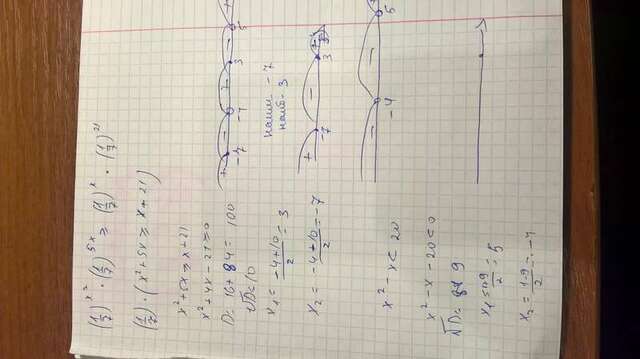 (1/7)^x² · (1/7)^5x ≥ (1/7)^x · (1/7)^21
(1/7) · (x² + 5x ≥ x + 21)
x² + 5x ≥ x + 21
x² + 4x - 21 ≥ 0
D = 16 + 84 = 100
√D = 10
x₁ = (-4+10)/2 = 3
x₂ = (-4+10)/2 = -7
+ - + - +
-7 -4 3 5
наим -7
наиб - 3
+ - +
-7 3
x² - x < 20
x² - x - 20 < 0
√D = 9
x₁ = (1+9)/2 = 5
x₂ = (1-9)/2 = -4
- - +
-4 5